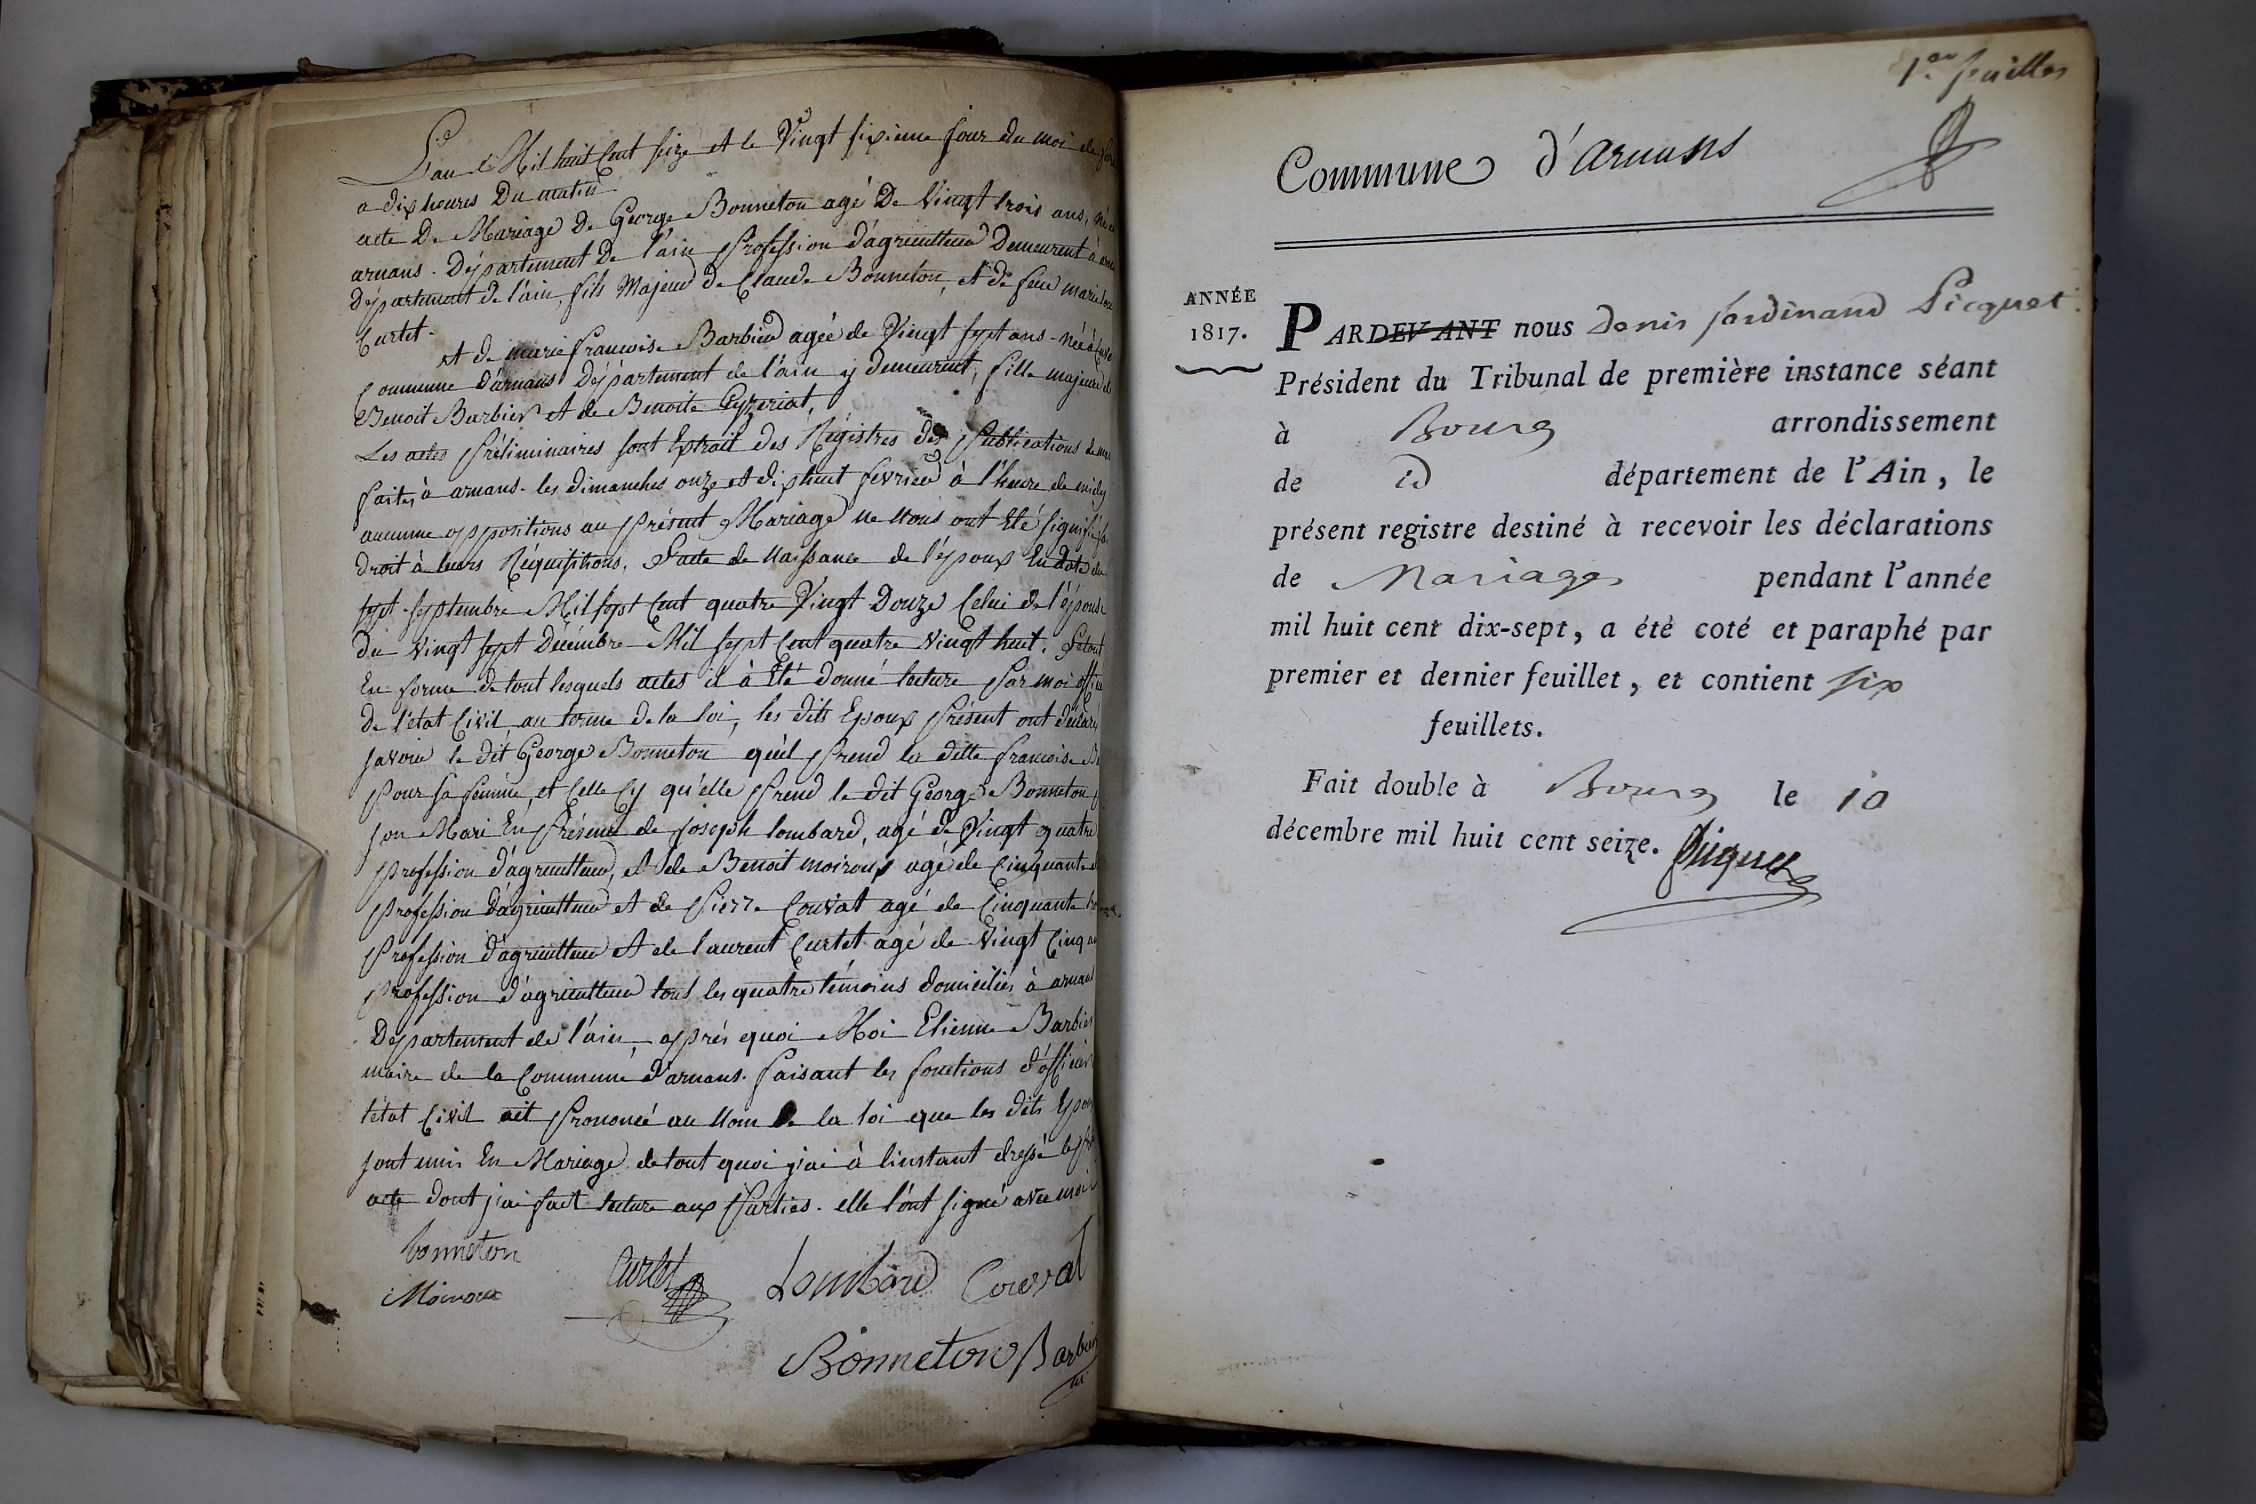 L'an de Mil huit Cent seize et le Vingt sixieme jour du moi de
a dix heures Du matin
acte De Mariage De George Bonneton agé De Vingt trois ans, né à
arnans. Département De l'ain Profession d'agriculteur Demeurent à
Département de l'ain, fils Majeur de Claude Bonneton, et de feue marie
Curtet.
et de marie francoise Barbier agée de Vingt sept ans - née à
Commune d'arnans Département de l'ain y demeurent, fille majeure de
Benoit Barbier et de Benoite Cyzeriat,
Les actes Préliminaires sont Extrait des Régistres des Publications de
faites à arnans les dimanches onze et dix huit février à l'heure de midy
aucunne oppositions au Présent Mariage ne nous ont Eté signifié
droit à leurs Réquisitions. L'acte de naissance de l'époux En date du
sept septembre Mil sept Cent quatre Vingt Douze Celui de l'épouse
du Vingt sept Décémbre Mil sept Cent quatre vingt huit. Le tout
En forme de tout lesquels actes il à Eté donné lecture Par moi officier
de l'état Civil au terme de la loi, les dits Epoux Présent ont déclaré
savoir le dit George Bonneton qu'il Prend la ditte francoise
Pour sa femme, et Celle Cy qu'elle Prend le dit George Bonneton
son Mari En Présence de joseph lombard, agé de Vingt quatre
Profession d'agriculteur, et de Benoit moiroux agé de Cinquante
Profession d'agriculteur et de Pierre Couvat agé de Cinquante
Profession d'agriculteur et de laurent Curtet agé de Vingt Cinq
Profession d'agriculteur tous les quatre témoins domiciliés à arnans
Département de l'ain, aprés quoi Moi Etienne Barbier
maire de la Commune d'arnans. faisant les fonctions d'officier
l'état Civil ait Prononcé au Nom de la loi que les dits Epoux
sont unis En Mariage. de tout quoi j'ai à linstant dressé le
acte dont j'ai fait lecture aux Parties. elle l'ont signé avec moi
bonneton
Curtet Lombard Couvat
Moiroux
Bonneton Barbier
1.er feuillet
Commune d'Arnans
ANNÉE
1817.
PARDEVANT nous Denis ferdinand Picquet
Président du Tribunal de première instance séant
à Bourg arrondissement
de id département de l'Ain, le
présent registre destiné à recevoir les déclarations
de Mariages pendant l'année
mil huit cent dix-sept, a été coté et paraphé par
premier et dernier feuillet, et contient six
feuillets.
Fait double à Bourg le 10
décembre mil huit cent seize. Picquet